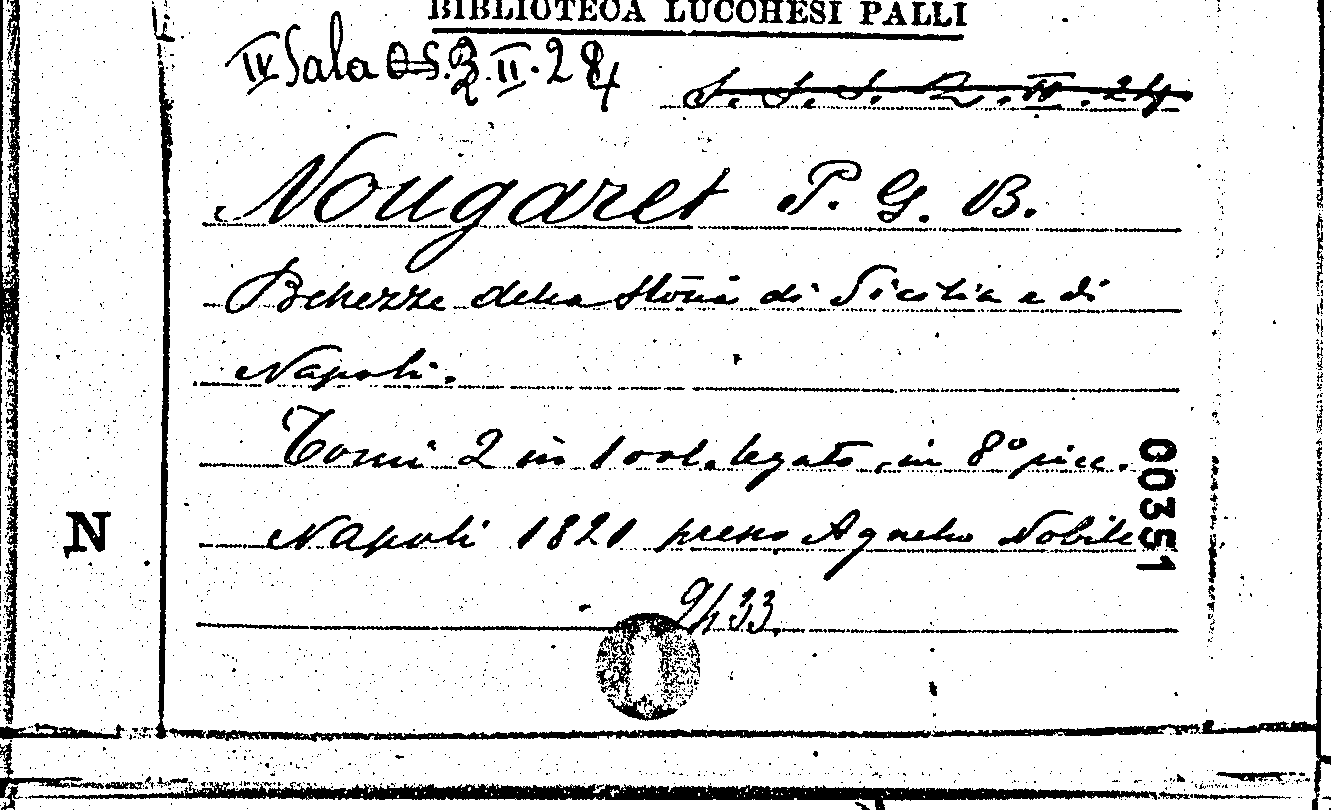 BIBLIOTECA LUCCHESI PALLI
IV Sala II. 2
S. S. S. 2. II. 24
Nougaret P. G. B.
Bellezze della storia di Sicilia e di
Napoli.
Tomi 2 in 1 vol. legato, in 8° picc.
Napoli 1821 presso Agnello Nobile
9433
N
00351